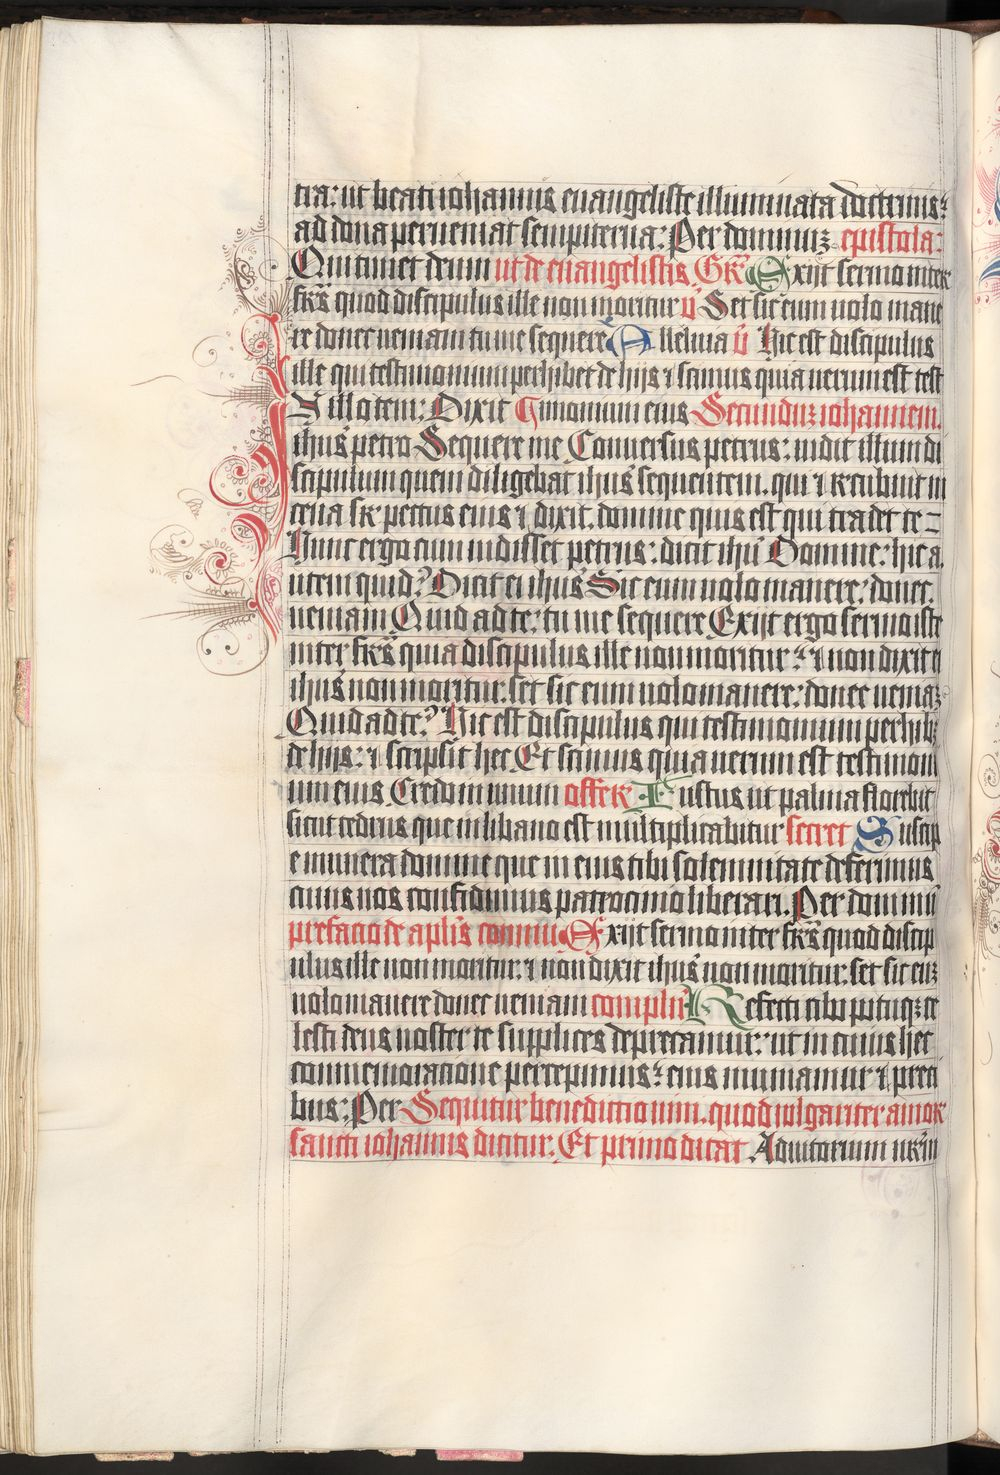 tra: ut beati iohannis euangeliste illuminata doctrinis:
ad dona perueniat sempiterna: Per dominuz epistola:
Qui timet deum ut de euangelistis Gr̄ Exijt sermo inter
fr̄s quod discipulus ille non moritur v̄ Set sic eum uolo mane
re donec ueniam tu me sequere Alleluia v̄ Hic est discipulus
ille qui testimonium perhibet de hijs ⁊ scimus quia uerum est test
In illo tem: Dixit imonium eius Secunduz iohannem.
ihūs petro Sequere me Conuersus petrus: uidit illum di
scipulum quem diligebat ihūs sequentem. qui ⁊ recubuit in
cena sr̄ pectus eius ⁊ dixit. domine quis est qui tradet te
Hunc ergo cum uidisset petrus: dicit ihū Domine: hic a
utem quid? Dicit ei ihūs Sic eum uolo manere: donec.
ueniam Quid ad te: tu me sequere Exijt ergo sermo iste
inter fr̄s quia discipulus ille non moritur: ⁊ non dixit ei
ihūs non moritur. set sic eum uolo manere: donec ueniaz
Quid ad te? Hic est discipulus qui testimonium perhibz
de hijs: ⁊ scripsit hec Et scimus quia uerum est testimoni
um eius Credo in unum offer̄ Iustus ut palma florebit
sicut cedrus que in libano est multiplicabitur secret Suscip
e munera domine que in eius tibi solemnitate deferimus
cuius nos confidimus patrocinio liberari. Per dominū
prefacio de aplīs cōmuni Exijt sermo inter fr̄s quod discip
ulus ille non moritur. ⁊ non dixit ihūs non moritur. set sic euz
uolo manere donec ueniam complēn Refecti cibo potuqz ce
lesti deus noster te supplices deprecamur: ut in cuius hec
commemoracione percepimus: eius muniamur ⁊ preci
bus: Per Sequitur benedictio uini. quod uulgariter amor
sancti iohannis dicitur. Et primo dicat Adiutorium nr̄m